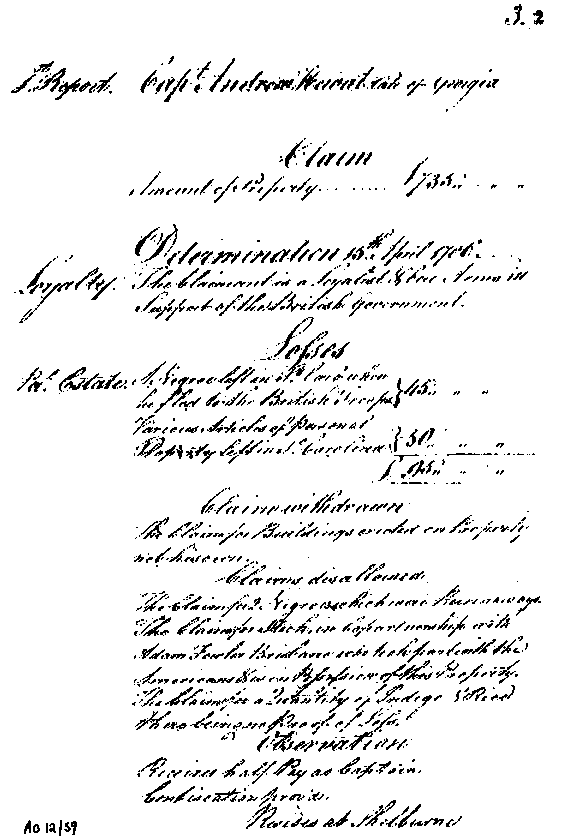 Report. Capt. Andrew Hewat late of Georgia
Claim
Amount of Property .......... £735 " " "
Determination 15th April 1786
Loyalty. The Claimant is a Loyalist & bore Arms in
Support of the British Government.
Losses
Pal. Estate. A Negro left in So. Caro. when
he fled to the British Troops } 45 " "
Various Articles of Personal
Property left in So. Carolina } 50 " "
£ 95 " "
Claims withdrawn
The Claim for Buildings erected on Property
not his own.
Claims disallowed
The Claim for 2 Negroes which were Runaways.
The Claim for Stock in Copartnership with
Adam Fowler Brisbane who took part with the
Americans & is in Possession of this Property.
The Claim for a Quantity of Indigo & Rice
there being no Proof of Loss.
Observation
Receives half Pay as Captain.
Confiscation proved.
Resides at Shelburne
AO 12/59